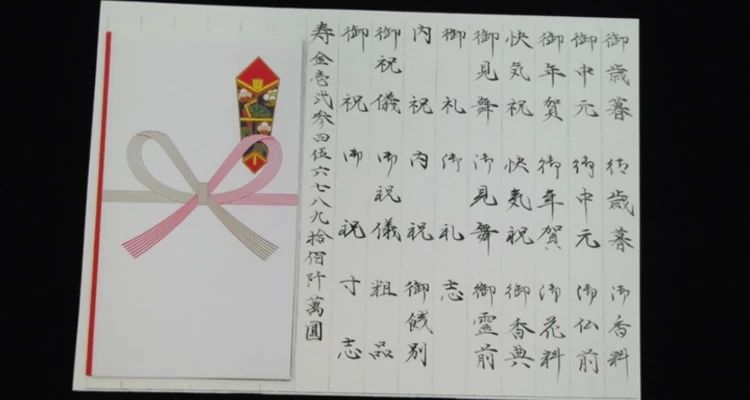 御歳暮 御歳暮 御香料
御中元 御中元 御仏前
御年賀 御年賀 御花料
快気祝 快気祝 御香典
御見舞 御見舞 御霊前
御礼 御礼 志
内祝 内祝 御餞別
御祝儀 御祝儀 粗品
御祝 御祝 寸志
寿金壱弐参四伍六七八九拾佰阡萬圓